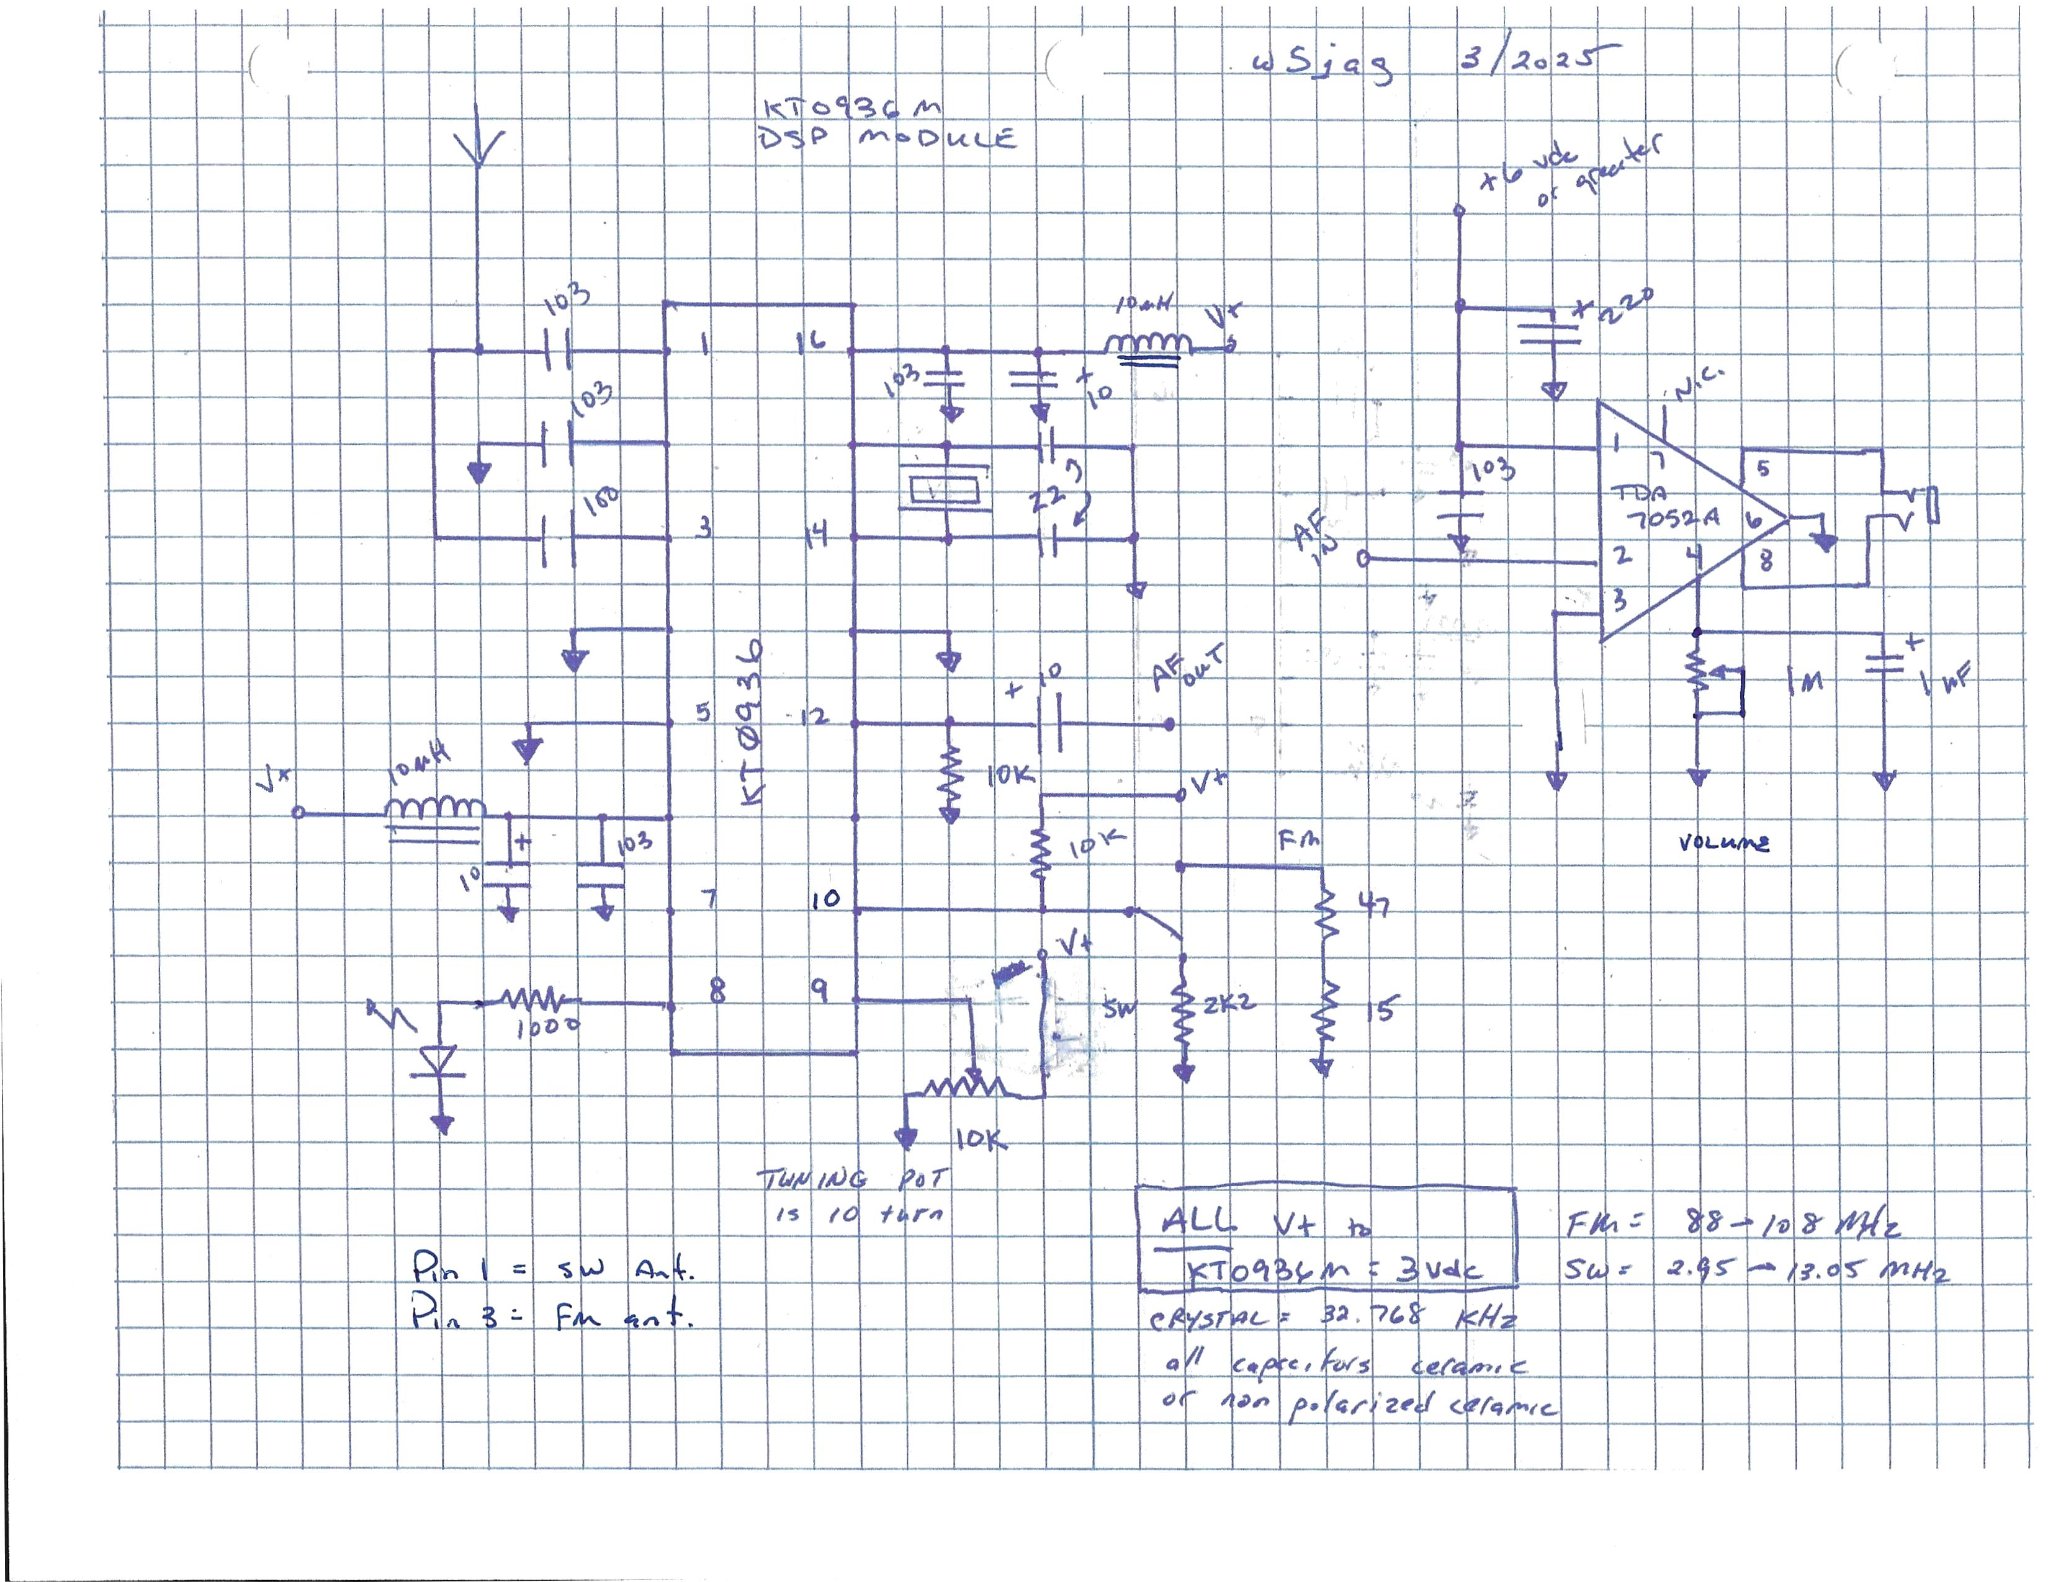 wSjag 3/2025
KT0936M
DSP MODULE
+6 vdc
or greater
103
10uH
V+
+ 220
1
16
103
+
10
N.C.
103
1
7
5
103
22
TDA
7052A
6
100
3
14
AF
IN
2
4
8
3
KT0936
AF
OUT
+ 10
+
1M
1uF
5
12
10uH
V+
10K
V+
10K
FM
VOLUME
+
10
103
7
10
47
V+
8
9
SW
2K2
15
1000
10K
TUNING POT
is 10 turn
ALL V+ to
KT0936M = 3vdc
FM = 88 → 108 MHz
SW = 2.95 → 13.05 MHz
Pin 1 = SW Ant.
Pin 3 = FM ant.
CRYSTAL = 32.768 KHz
all capacitors ceramic
or non polarized ceramic